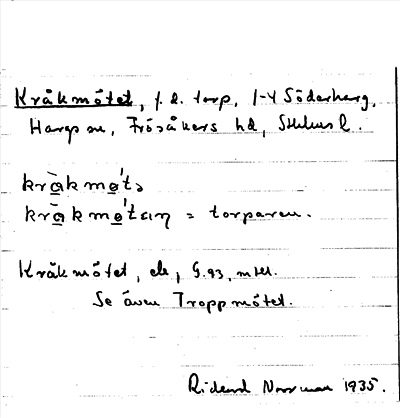 Kråkmötet, f.d. torp, 1-4 Söderharg,
Hargs sn, Frösåkers hd, Sthlms l.
kràkmø't
kràkmø'tɛıŋ = torparen.
Kråkmötet, ek, G.93,
Se även Troppmötet.
Ridend Norrman 1935.